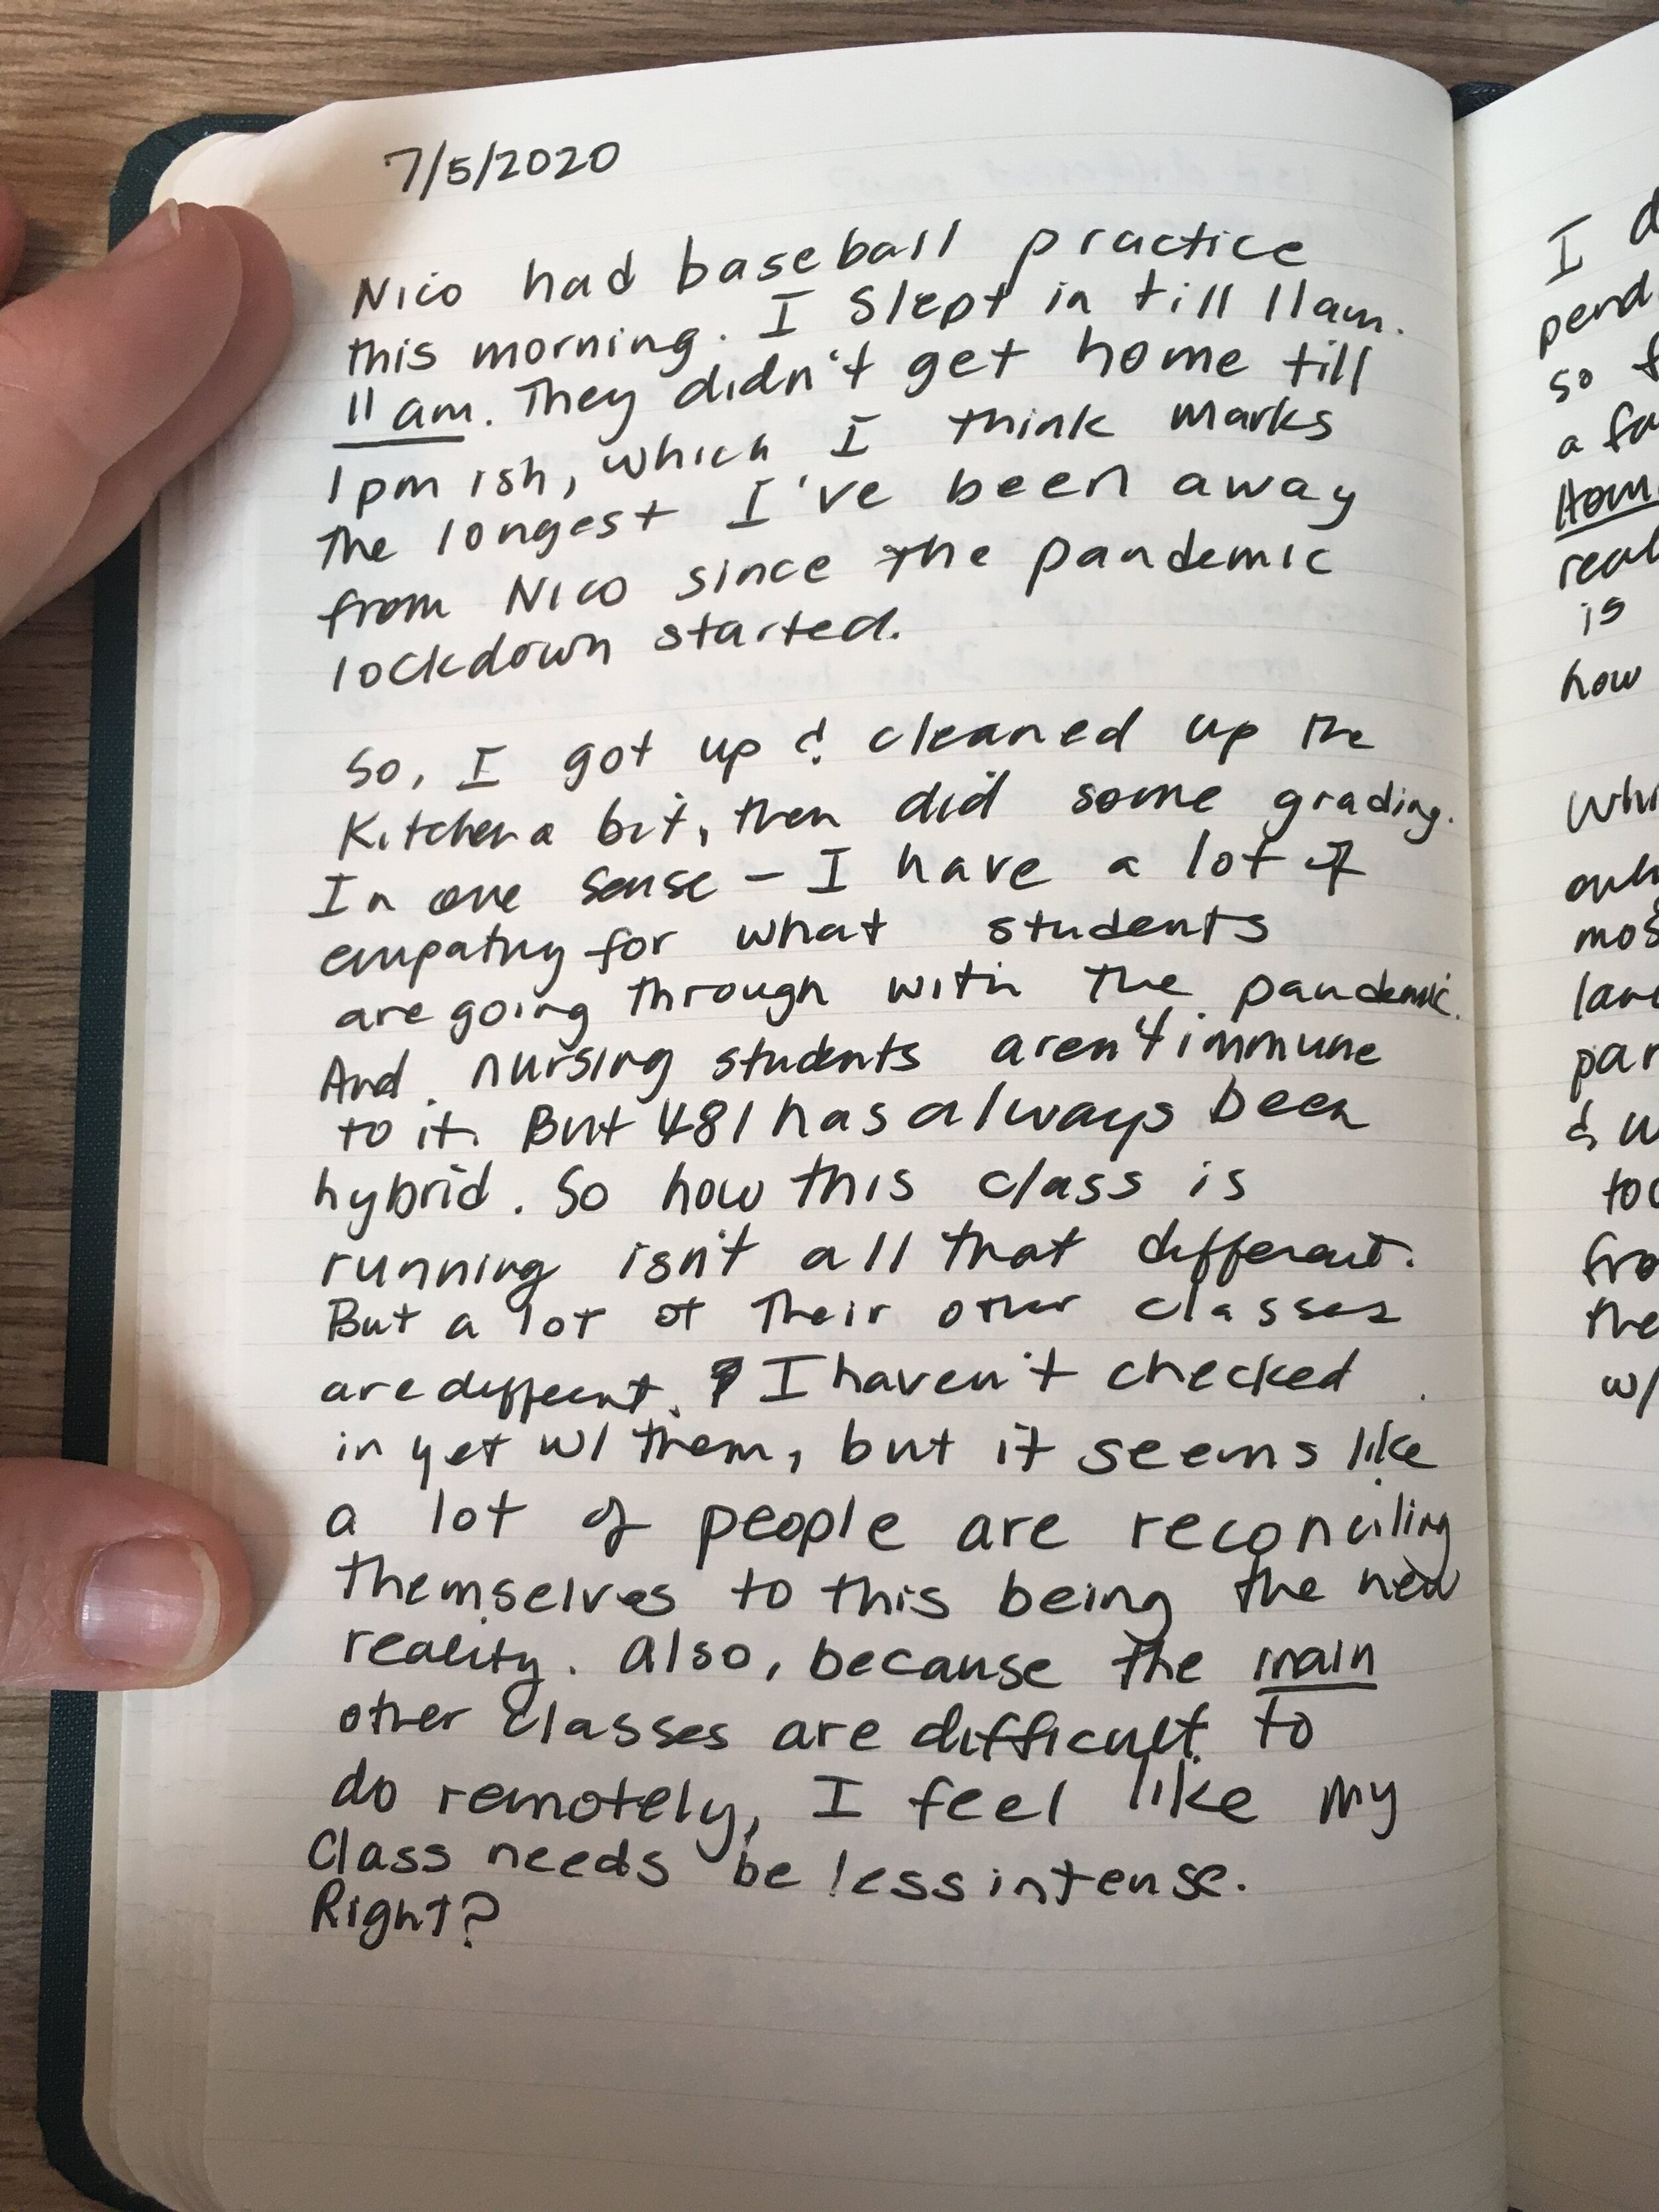 7/5/2020
Nico had baseball practice
this morning. I slept in till 11am.
11 am. They didn't get home till
1pm ish, which I think marks
the longest I've been away
from Nico since the pandemic
lockdown started.
So, I got up & cleaned up the
Kitchen a bit, then did some grading.
In one sense - I have a lot of
empathy for what students
are going through with the pandemic.
And nursing students aren't immune
to it. But 481 has always been
hybrid. So how this class is
running isn't all that different.
But a lot of their other classes
are different. I haven't checked
in yet w/ them, but it seems like
a lot of people are reconciling
themselves to this being the new
reality. Also, because the main
other classes are difficult to
do remotely, I feel like my
Class needs be less intense.
Right?
I d
pend
so f
a fa
Hom
real
is
how
Whi
only
mos
lan
par
& w
too
fro
the
w/